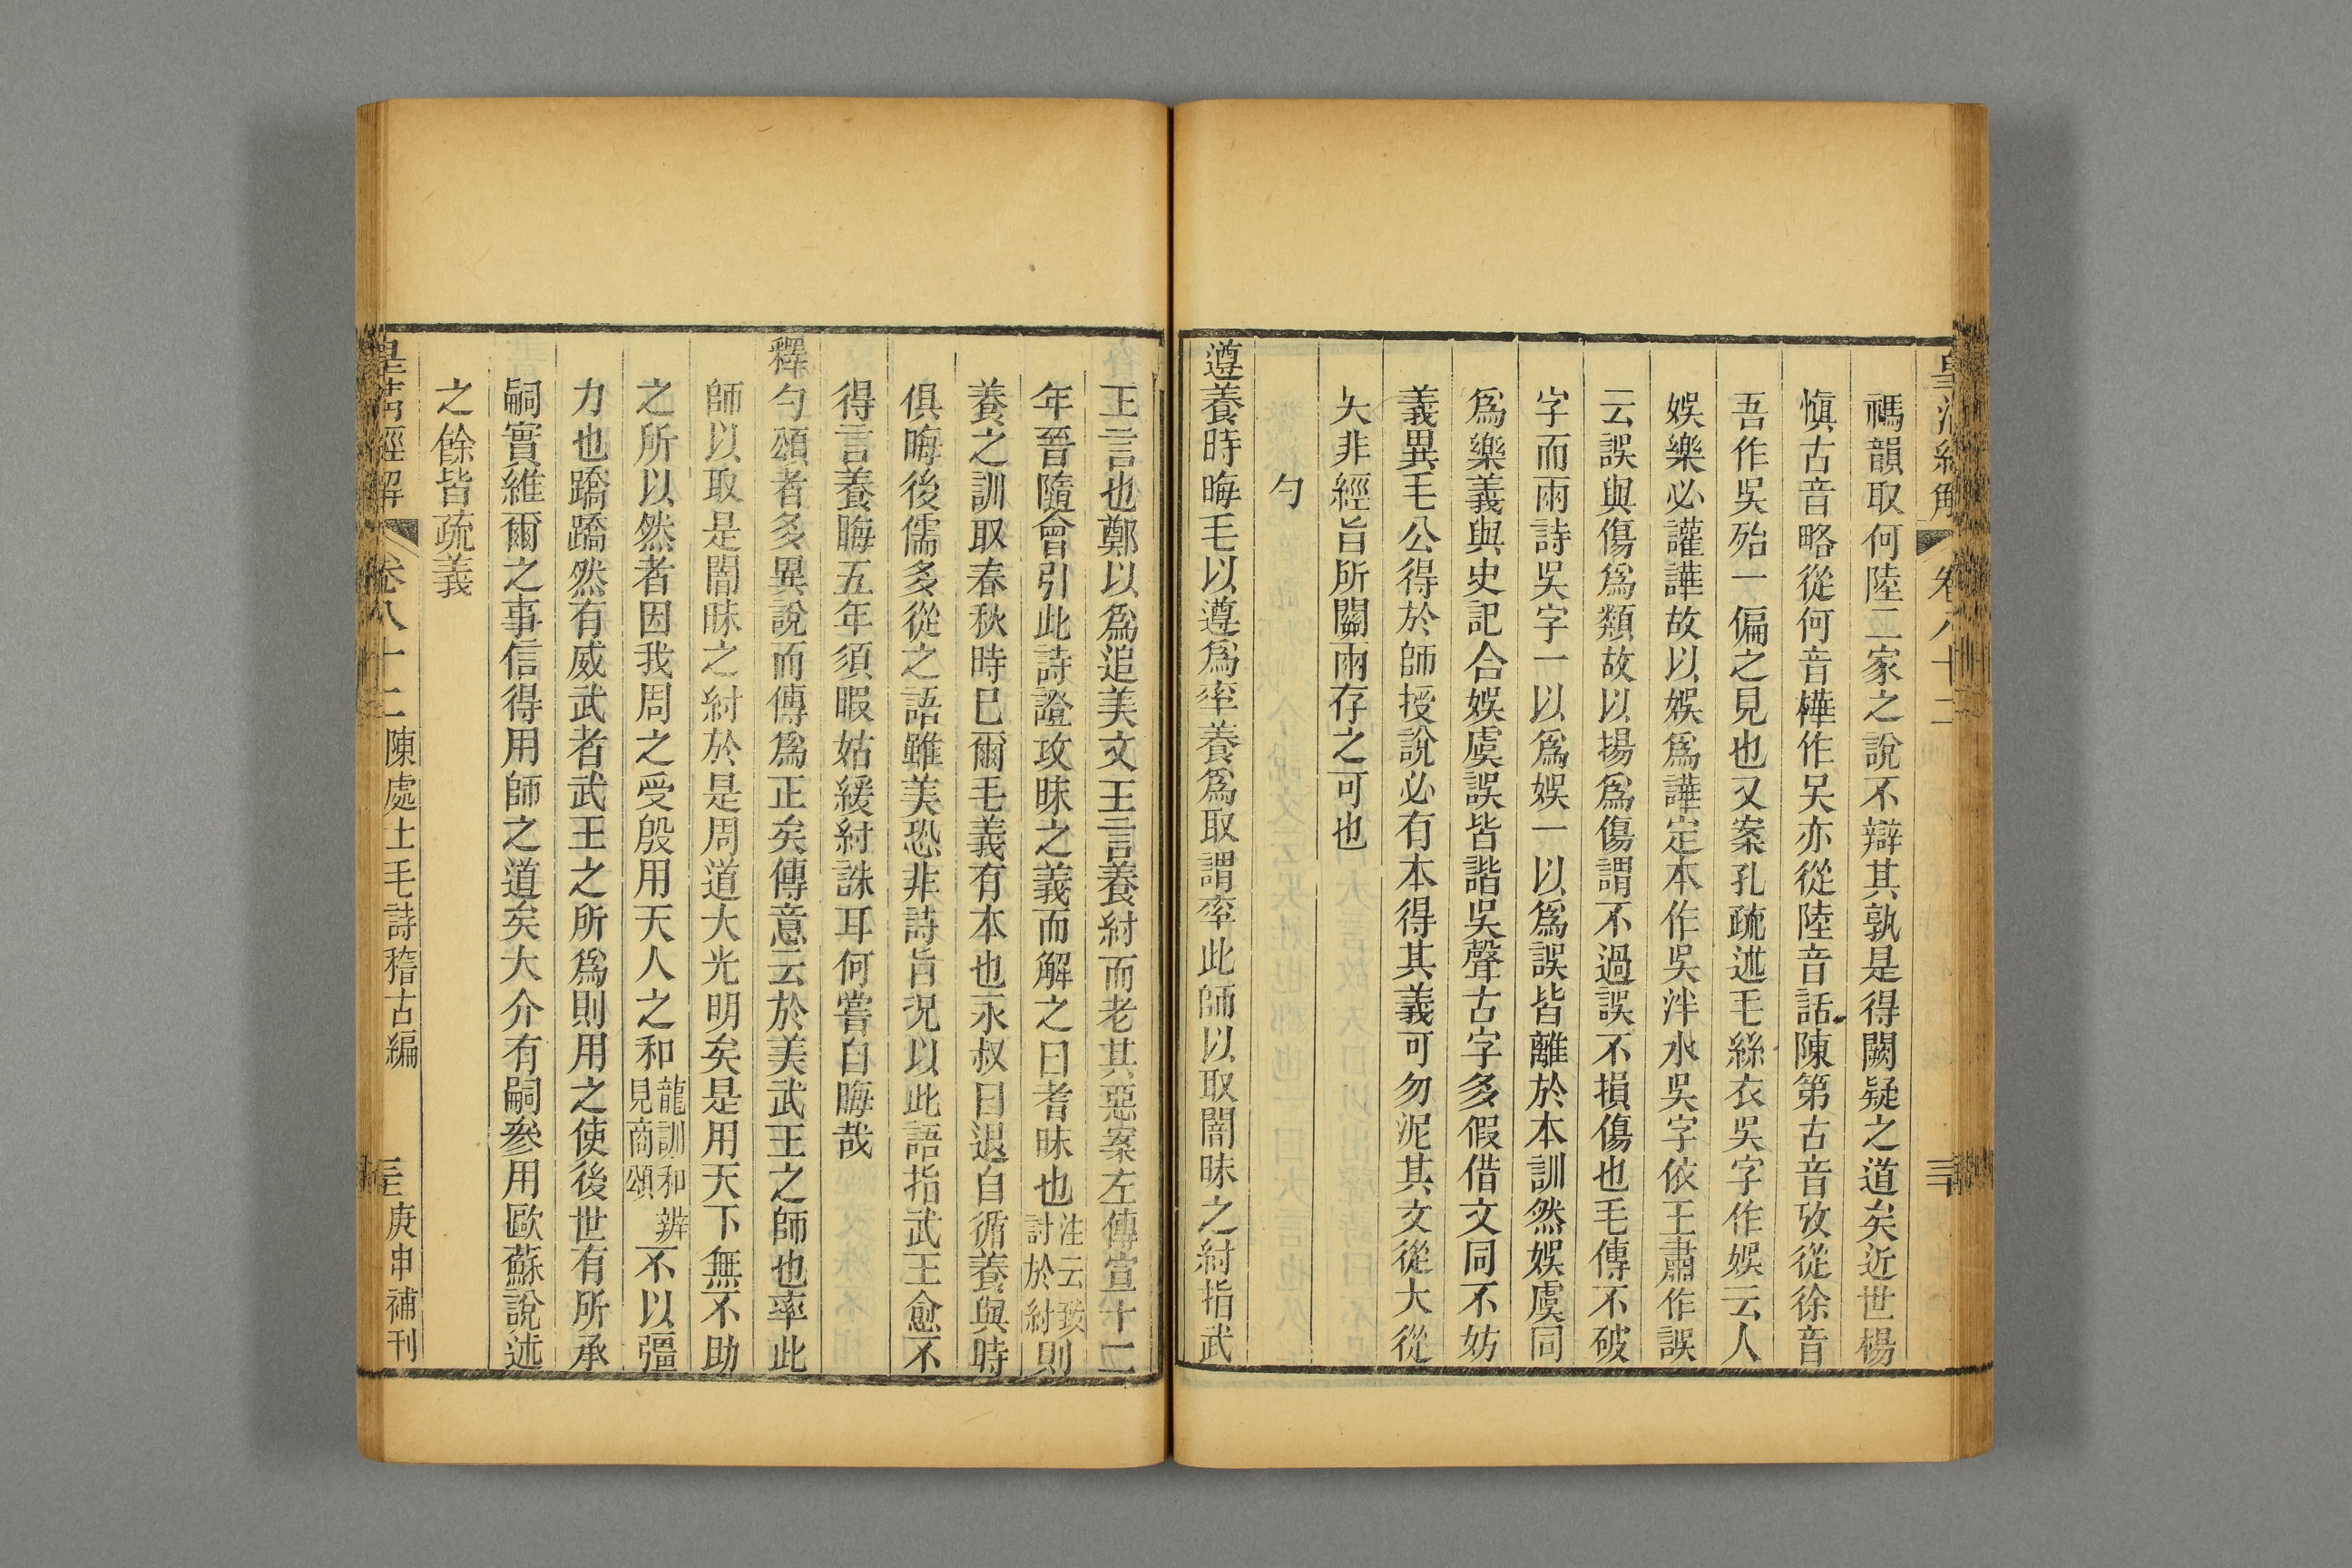 皇清經解 卷八十二 三
禡韻取何陸二家之說不辯其孰是得闕疑之道矣近世楊
愼古音略從何音樺作吴亦從陸音話陳第古音攷從徐音
吾作吳殆一偏之見也又案孔疏述毛絲衣吳字作娛云人
娛樂必讙譁故以娛爲譁定本作吳泮水吳字依王肅作誤
云誤與傷爲類故以揚爲傷謂不過誤不損傷也毛傳不破
字而兩詩吳字一以爲娛一以爲誤皆離於本訓然娛虞同
爲樂義與史記合娛虞誤皆諧吳聲古字多假借文同不妨
義異毛公得於師授說必有本得其義可勿泥其文從大從
夨非經旨所關兩存之可也
勺
遵養時晦毛以遵爲率養爲取謂率此師以取闇昧之紂指武
王言也鄭以爲追美文王言養紂而老其惡案左傳宣十二
年晉隨會引此詩證攻昧之義而解之曰耆昧也注云致討於紂則
養之訓取春秋時已爾毛義有本也永叔曰退自循養與時
俱晦後儒多從之語雖美恐非詩旨況以此語指武王愈不
得言養晦五年須暇姑緩紂誅耳何嘗自晦哉
釋勺頌者多異說而傳爲正矣傳意云於美武王之師也率此
師以取是闇昧之紂於是周道大光明矣是用天下無不助
之所以然者因我周之受殷用天人之和龍訓和辨見商頌不以彊
力也蹻蹻然有威武者武王之所爲則用之使後世有所承
嗣實維爾之事信得用師之道矣大介有嗣參用歐蘇說述
之餘皆疏義
皇清經解 卷八十二 陳處士毛詩稽古編 庚申補刊